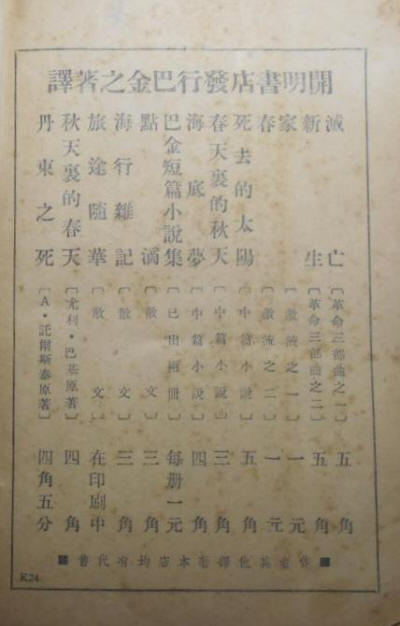 開明書店發行巴金之著譯
滅亡〔革命三部曲之一〕五角
新生〔革命三部曲之二〕五角
家〔激流之一〕一元
春〔激流之二〕一元
死去的太陽〔中篇小說〕五角
春天裏的秋天〔中篇小說〕三角
海底夢〔中篇小說〕四角
巴金短篇小說集〔已出兩冊〕每冊一元
點滴〔散文〕三角
海行雜記〔散文〕三角
旅途隨筆〔散文〕在印刷中
秋天裏的春天〔尤利·巴基原著〕四角
丹東之死〔A·託爾斯泰原著〕四角五分
■作者其他譯著本店均有代售■
K24.